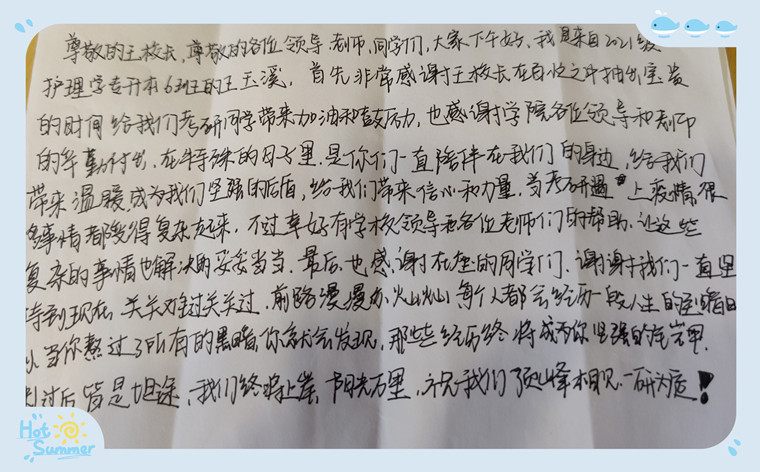 尊敬的王校长,尊敬的各位领导老师,同学们,大家下午好,我是来自2021级
护理学专升本6班的王玉溪,首先非常感谢王校长在百忙之中抽出宝贵
的时间给我们考研同学带来加油和鼓励,也感谢学院各位领导和老师
的辛勤付出,在特殊的日子里,是你们一直陪伴在我们的身边,给我们
带来温暖,成为我们坚强的后盾,给我们带来信心和力量,当考研遇上疫情,很
多事情都变得复杂起来,不过幸好有学校领导和各位老师们的帮助,让这些
复杂的事情也解决的妥妥当当,最后,也感谢在座的同学们,谢谢我们一直坚
持到现在,关关难过关关过,前路漫漫亦灿灿,每个人都会经历一段人生的至暗时
当你熬过了所有的黑暗,你就会发现,那些经历终将成为你坚强的铠甲,
过后皆是坦途,我们终将上岸,阳光万里,祝我们顶峰相见,一研为定!
Hot
Summer